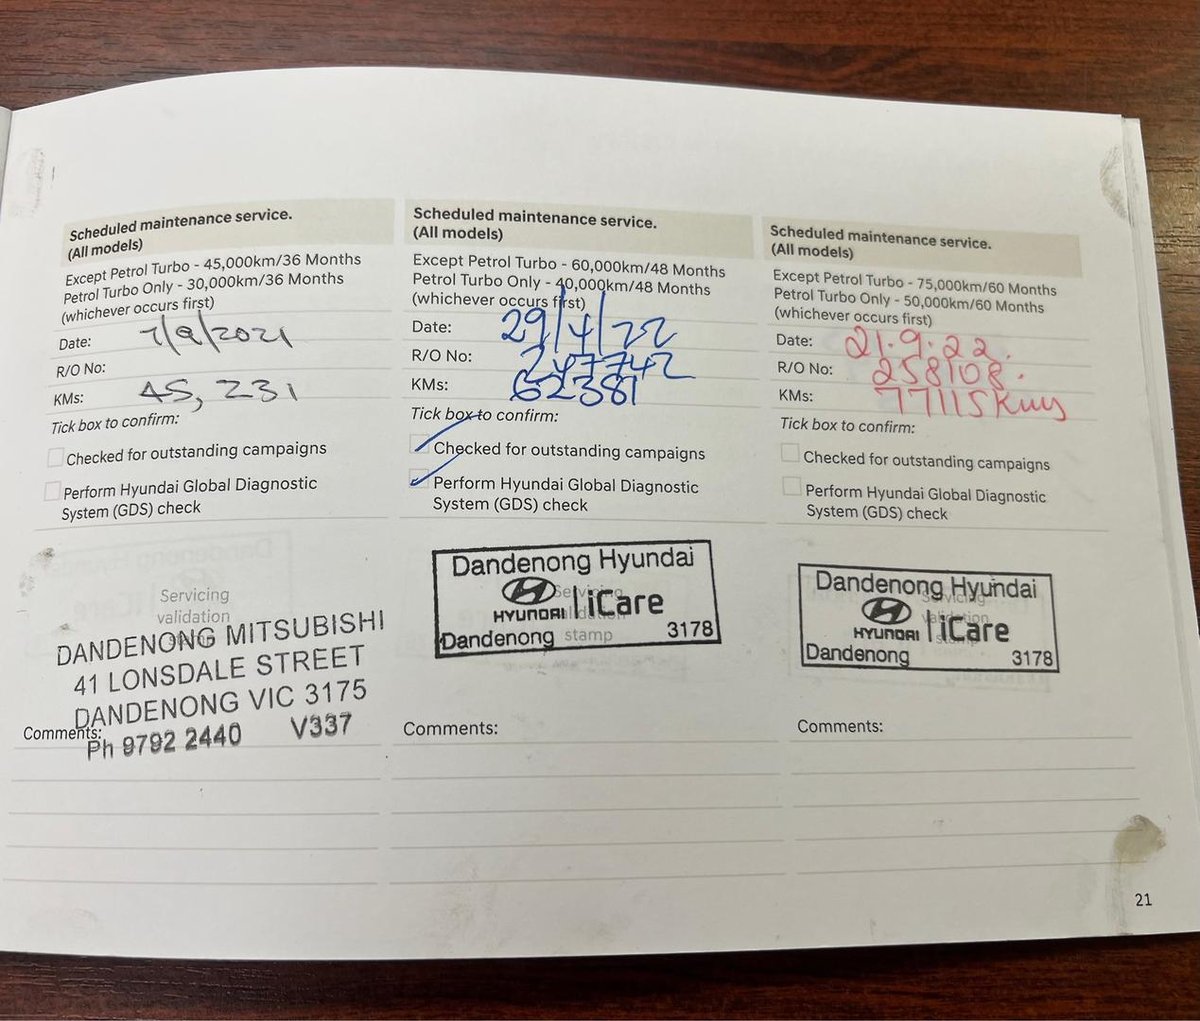 Scheduled maintenance service.
(All models)
Except Petrol Turbo - 45,000km/36 Months
Petrol Turbo Only - 30,000km/36 Months
(whichever occurs first)
Date: 7/9/2021
R/O No:
KMs: 45,231
Tick box to confirm:
Checked for outstanding campaigns
Perform Hyundai Global Diagnostic
System (GDS) check
Servicing
validation
DANDENONG MITSUBISHI
41 LONSDALE STREET
DANDENONG VIC 3175
Ph 9792 2440 V337
Comments:
Scheduled maintenance service.
(All models)
Except Petrol Turbo - 60,000km/48 Months
Petrol Turbo Only - 40,000km/48 Months
(whichever occurs first)
Date: 29/4/22
R/O No: 247742
KMs: 62381
Tick box to confirm:
Checked for outstanding campaigns
Perform Hyundai Global Diagnostic
System (GDS) check
Dandenong Hyundai
Servicing
validation
HYUNDAI iCare
stamp
Dandenong 3178
Comments:
Scheduled maintenance service.
(All models)
Except Petrol Turbo - 75,000km/60 Months
Petrol Turbo Only - 50,000km/60 Months
(whichever occurs first)
Date: 21.9.22.
R/O No: 258108.
KMs: 77115 Kms
Tick box to confirm:
Checked for outstanding campaigns
Perform Hyundai Global Diagnostic
System (GDS) check
Dandenong Hyundai
Servicing
validation
HYUNDAI iCare
stamp
Dandenong 3178
Comments:
21